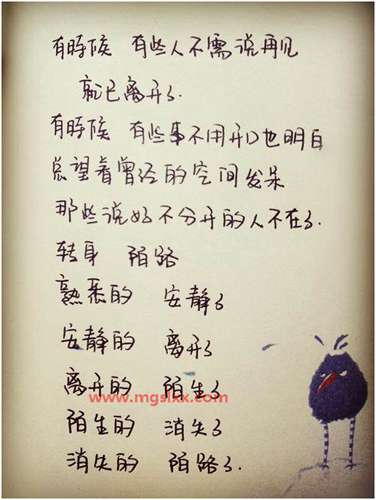 有時候 有些人不需说再见
就已离开了.
有時候 有些事不用开口也明白
总望着曾经的空间发呆
那些说好不分开的人不在了.
转身 陌路
熟悉的 安静了
安静的 离开了
离开的 陌生了
www.mgslxx.com
陌生的 消失了
消失的 陌路了.